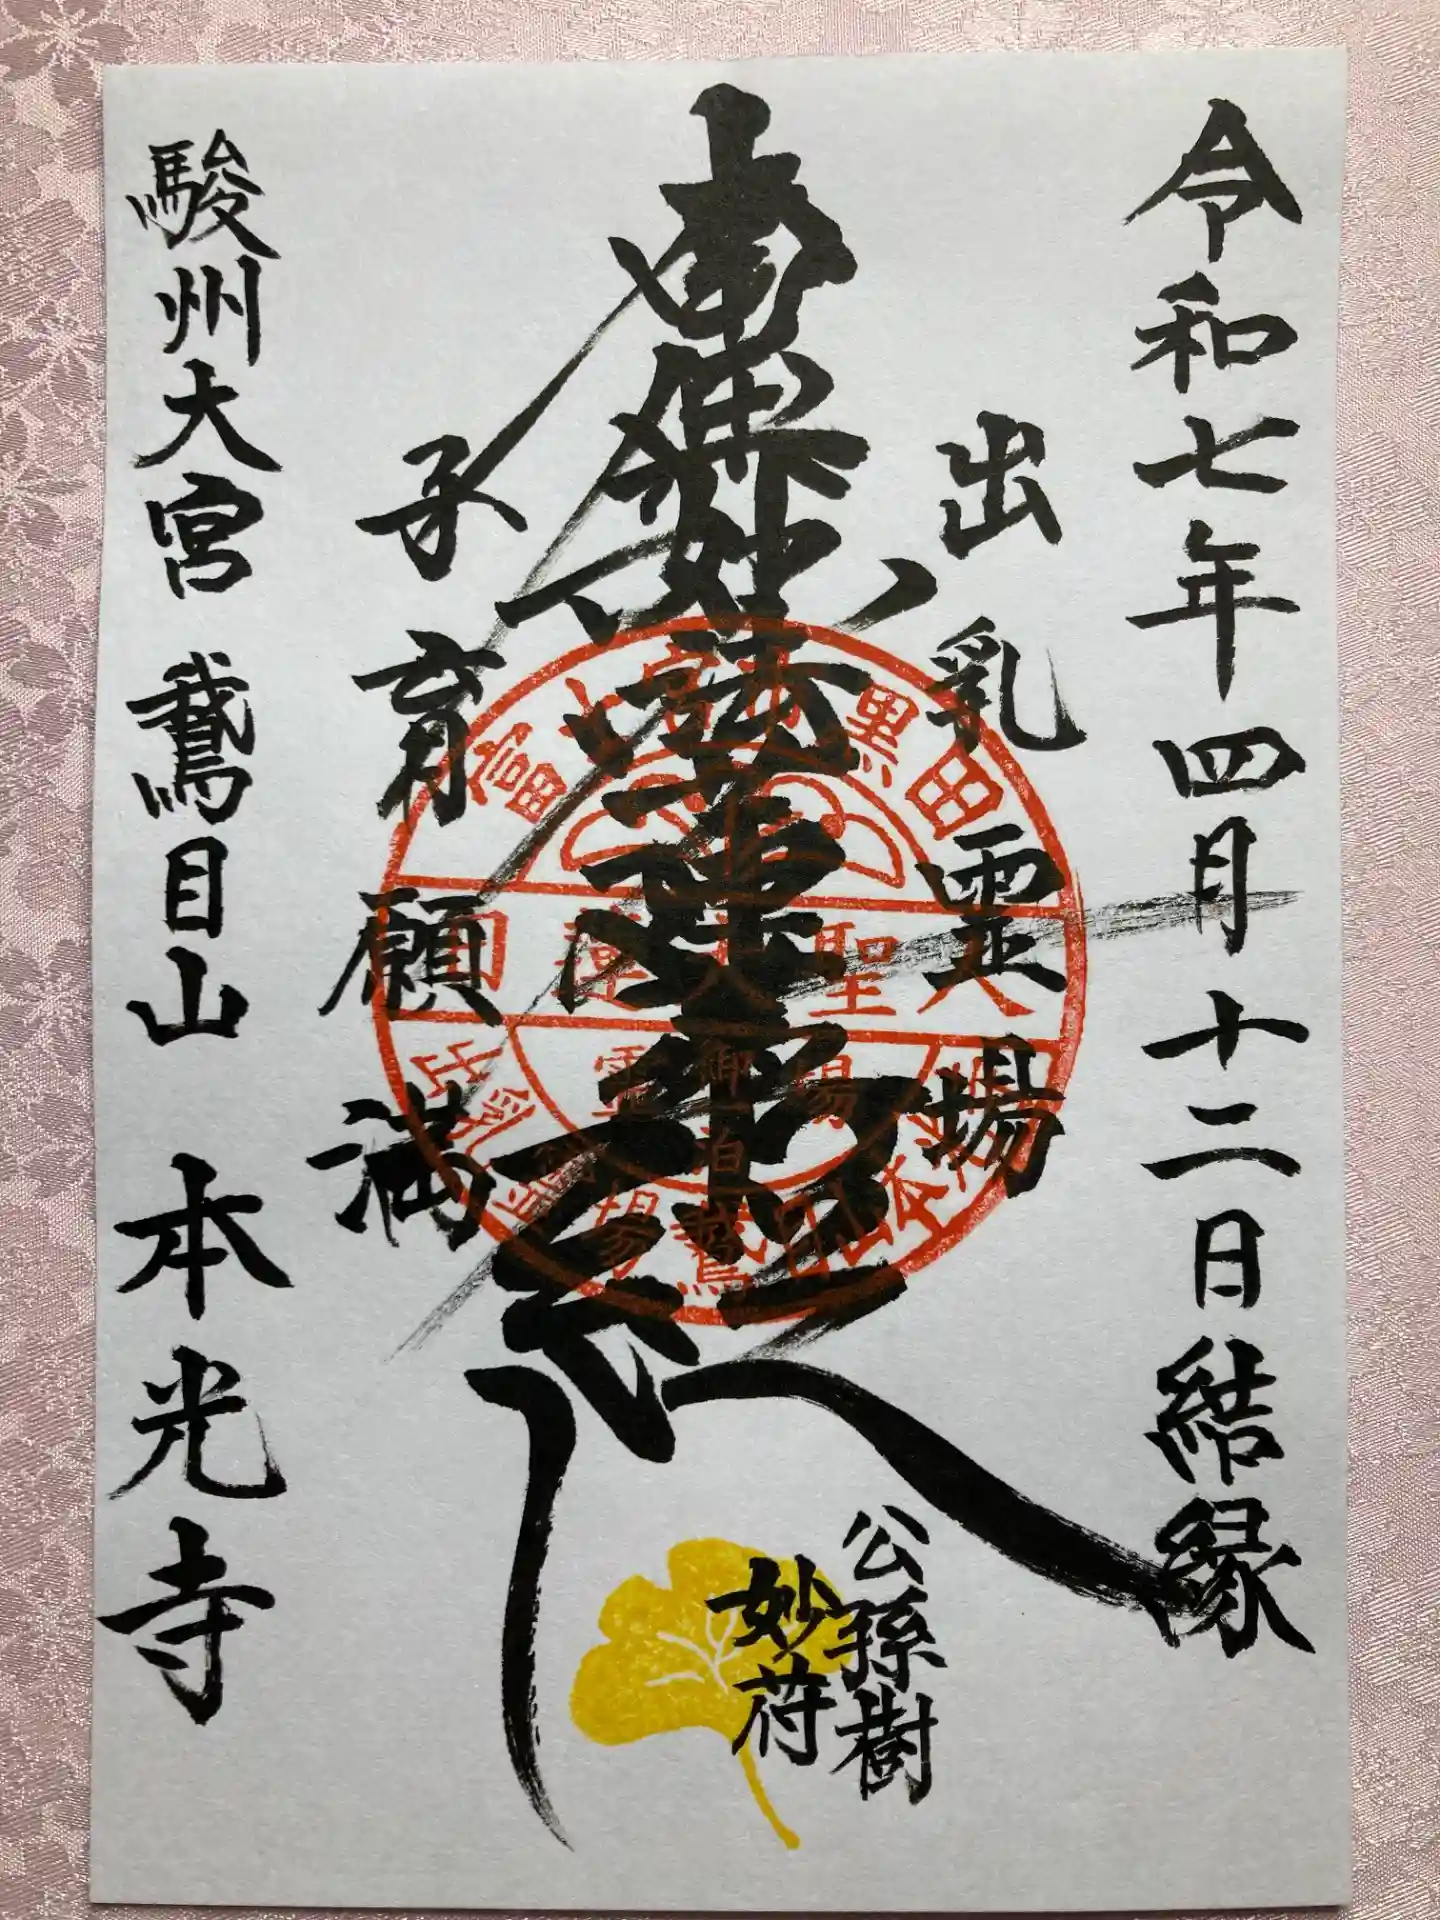 令和七年四月十二日結縁
出乳霊場
南無妙法蓮華経
子育願満
公孫樹
妙荷
駿州大宮 鵞目山 本光寺